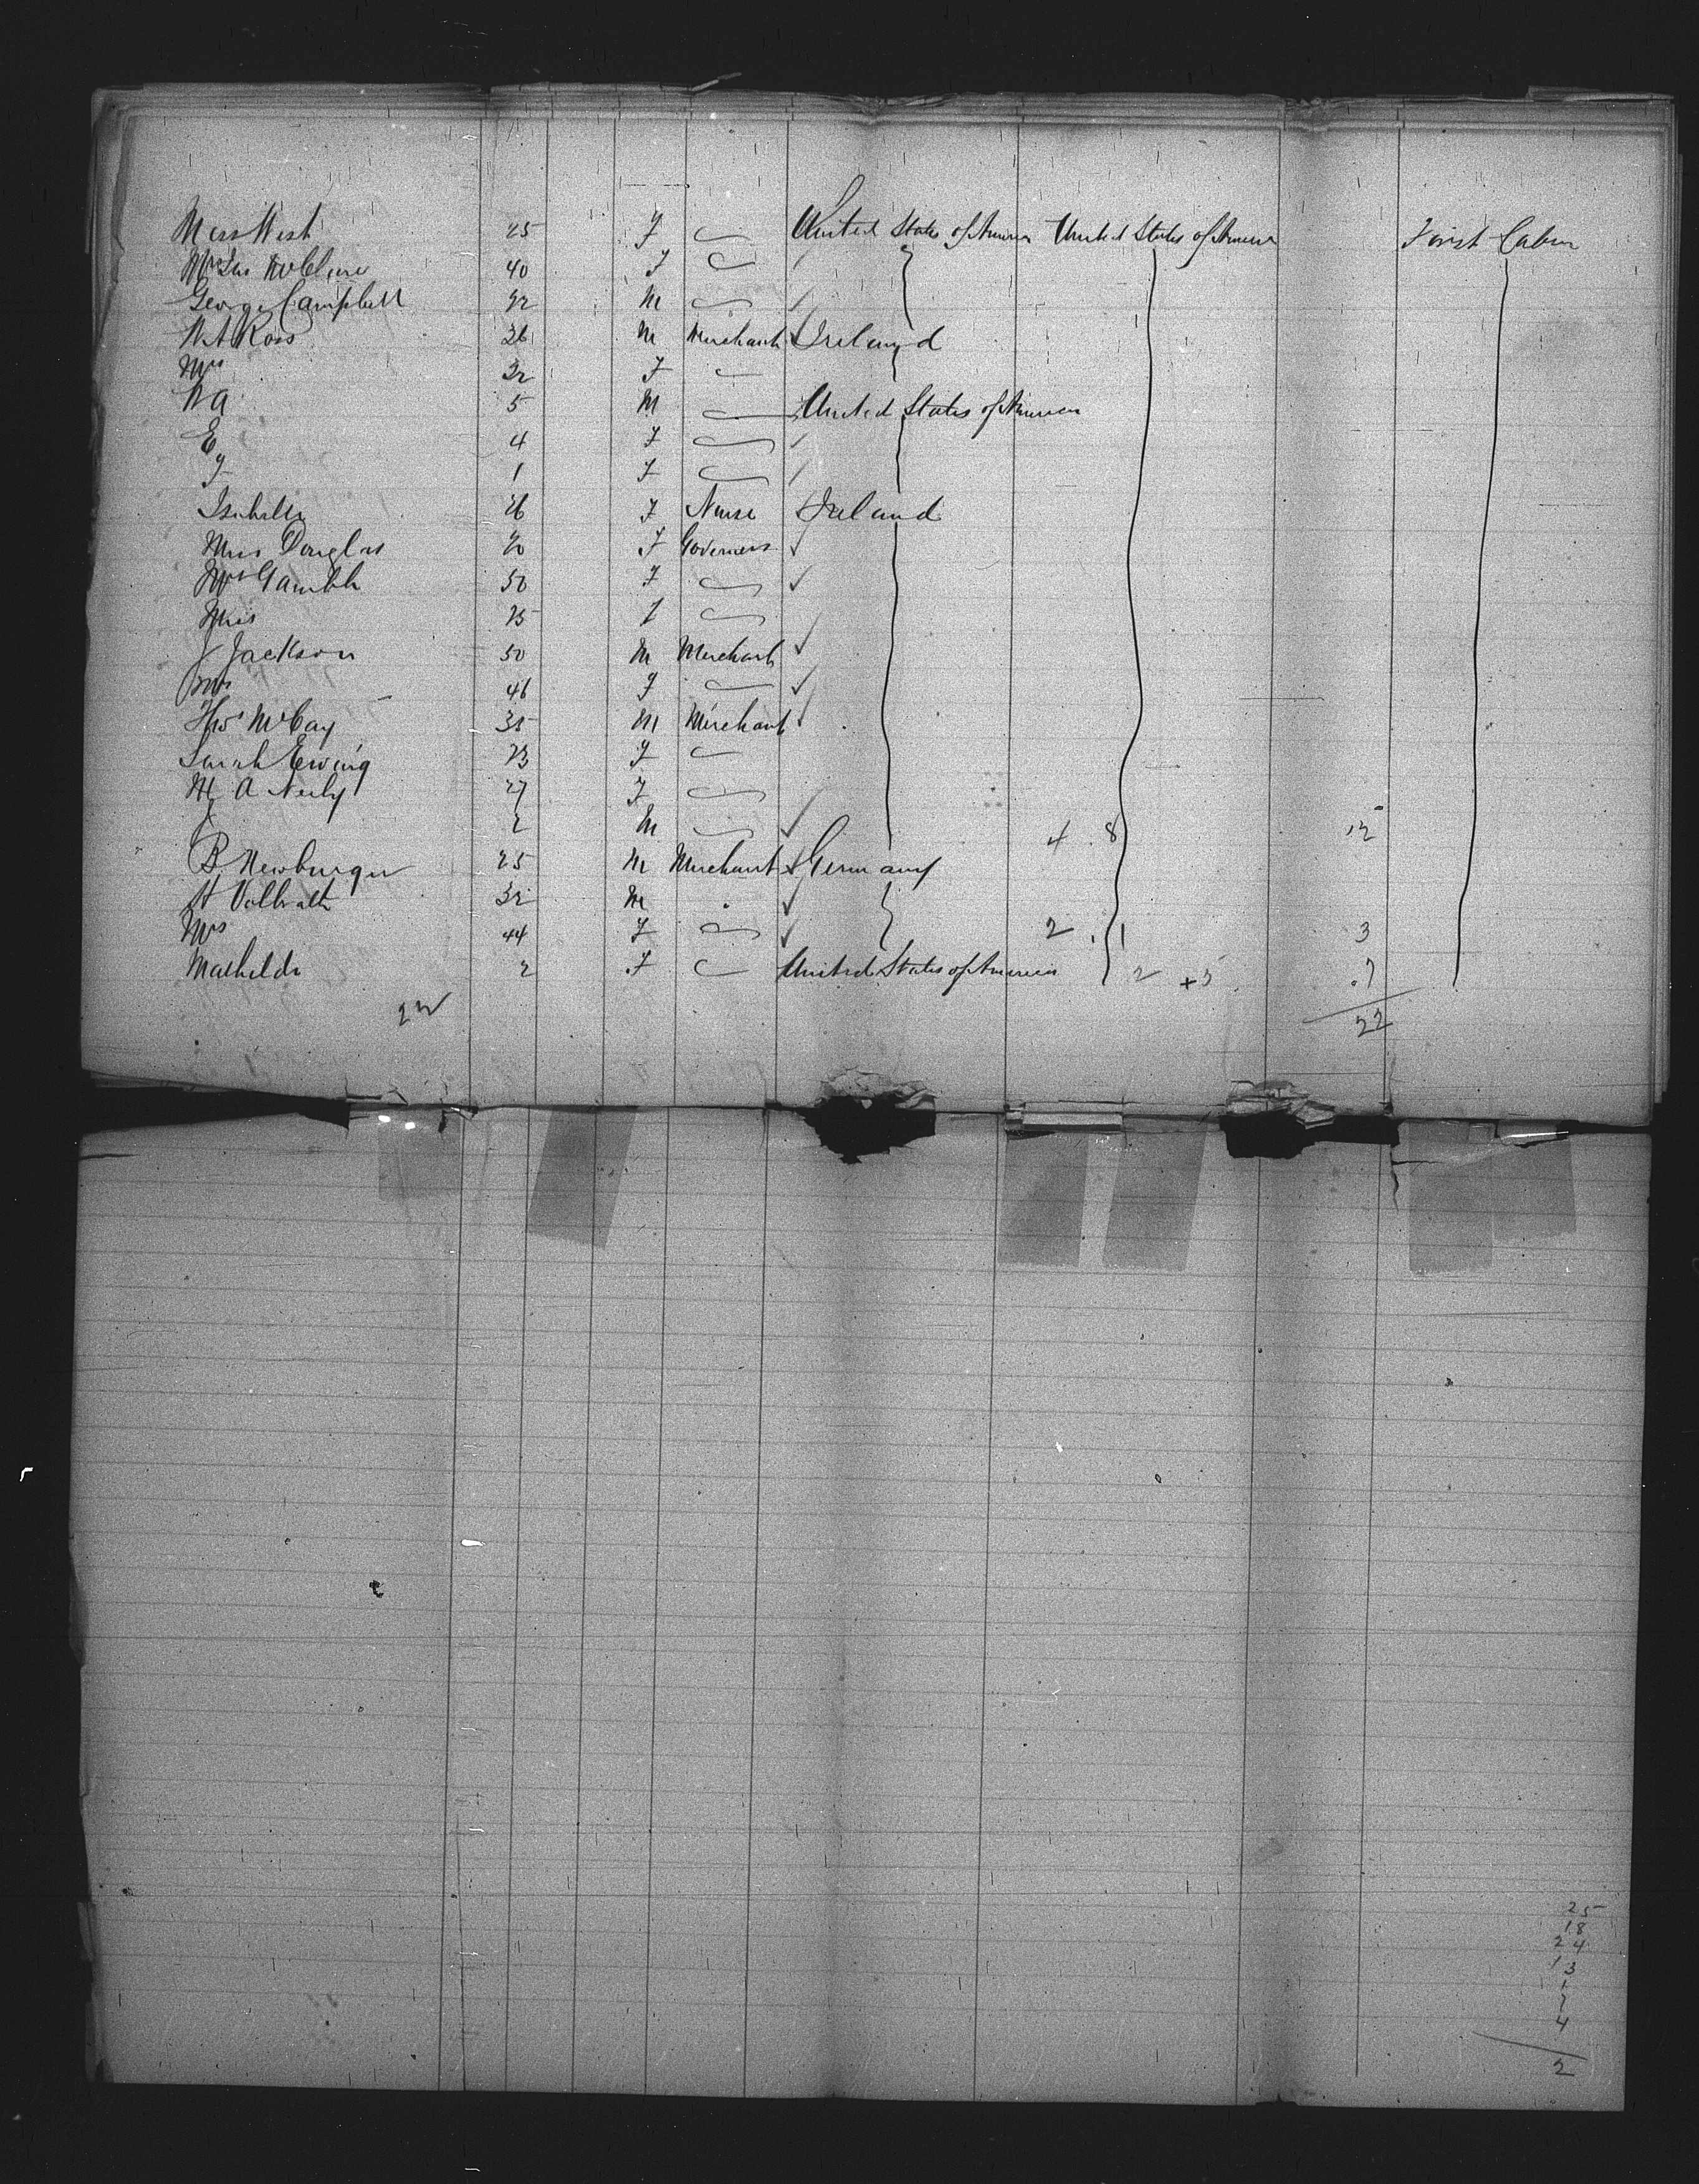 Miss West 25 F United States of America United States of America First Cabin
Mrs Jas McClure 40 F
George Campbell 42 M
W A Ross 36 M Merchant Ireland
Mrs 32 F
W A 5 M United States of America
E 4 F
J 1 F
Isabella 26 F Nurse Ireland
Miss Douglas 20 F Governess
Mrs Gamble 50 F
Miss 25 F
J Jackson 50 M Merchant
Mrs 46 F
Thos McCay 35 M Merchant
Sarah Ewing 23 F
M A Neely 27 F
J 2 M 4 8 12
B Newburger 25 M Merchant Germany
H Vollrath 32 M
Mrs 44 F 2 1 3
Mathilde 2 F United States of America 2 +5 7
22 22
25
18
24
13
1
7
4
2